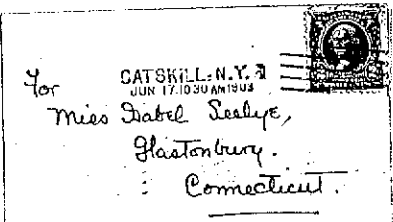 CATSKILL, N.Y.
JUN 17. 10 30 AM 1903
For
Miss Isabel Seelye,
Glastonbury.
Connecticut.